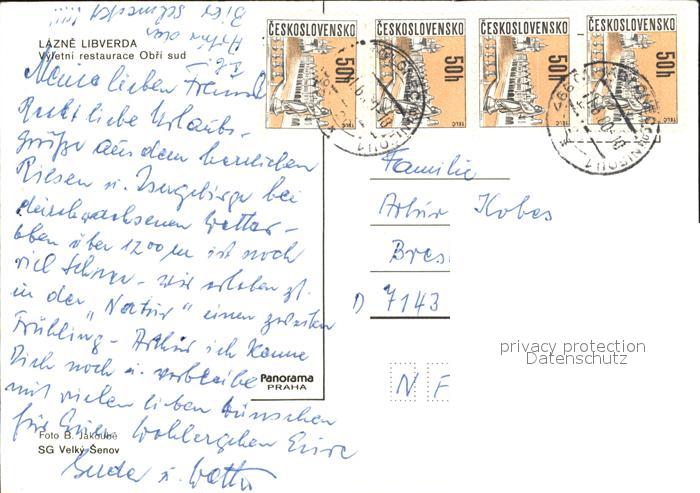 LÁZNĚ LIBVERDA
Výletní restaurace Obří sud
ČESKOSLOVENSKO 50h TELČ
ČESKOSLOVENSKO 50h TELČ
ČESKOSLOVENSKO 50h TELČ
ČESKOSLOVENSKO 50h TELČ
Meine lieben
Recht liebe Urlaubs-
grüße aus dem herrlichen
Riesen u. Isergebirge bei
durchwachsenem Wetter -
oben über 1200 m ist noch
viel Schnee - wir erleben
in der "Natur" einen zweiten
Frühling - Arthur ich kenne
Dich noch u. verbleibe
mit vielen lieben Wünschen
für Euer Wohlergehen Eure
u.
Familie
Artur Kobes
Bres
D 7143
N F
Panorama
PRAHA
Foto B. Jakoubě
SG Velký Šenov
privacy protection
Datenschutz